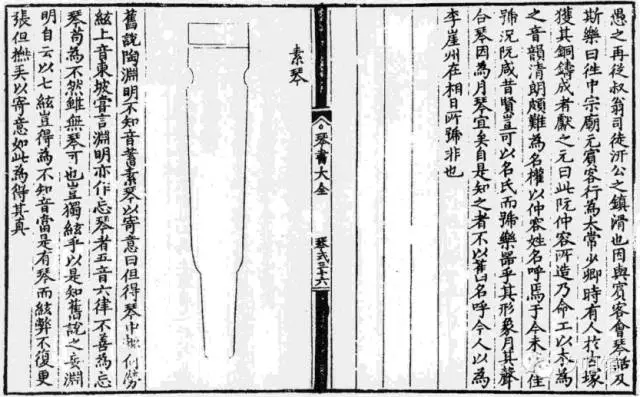 愚之再從叔翁司徒汧公之鎮滑也因與賓客會琴話及
斯樂曰往中宗廟元賓客行為太常少卿時有人於古塚
獲其銅鑄成者獻之元曰此阮仲容所造乃命工以木為
之音韻清朗頗難為名權以仲容姓名呼焉于今未佳
號況阮咸昔賢豈可以名氏而號樂器乎其形象月其聲
合琴因為月琴宜矣自是知之者不以舊名呼令人以為
李崖州在相日所號非也
琴書大全
琴式三十六
素琴
舊說陶淵明不知音蓄素琴以寄意曰但得琴中趣何勞
絃上音東坡嘗言淵明亦作忘琴者五音六律不善為忘
琴苟為不然雖無琴可也豈獨絃乎以是知舊說之妄淵
明自云以七絃豈得為不知音當是有琴而絃弊不復更
張但撫矣以寄意如此為得其真